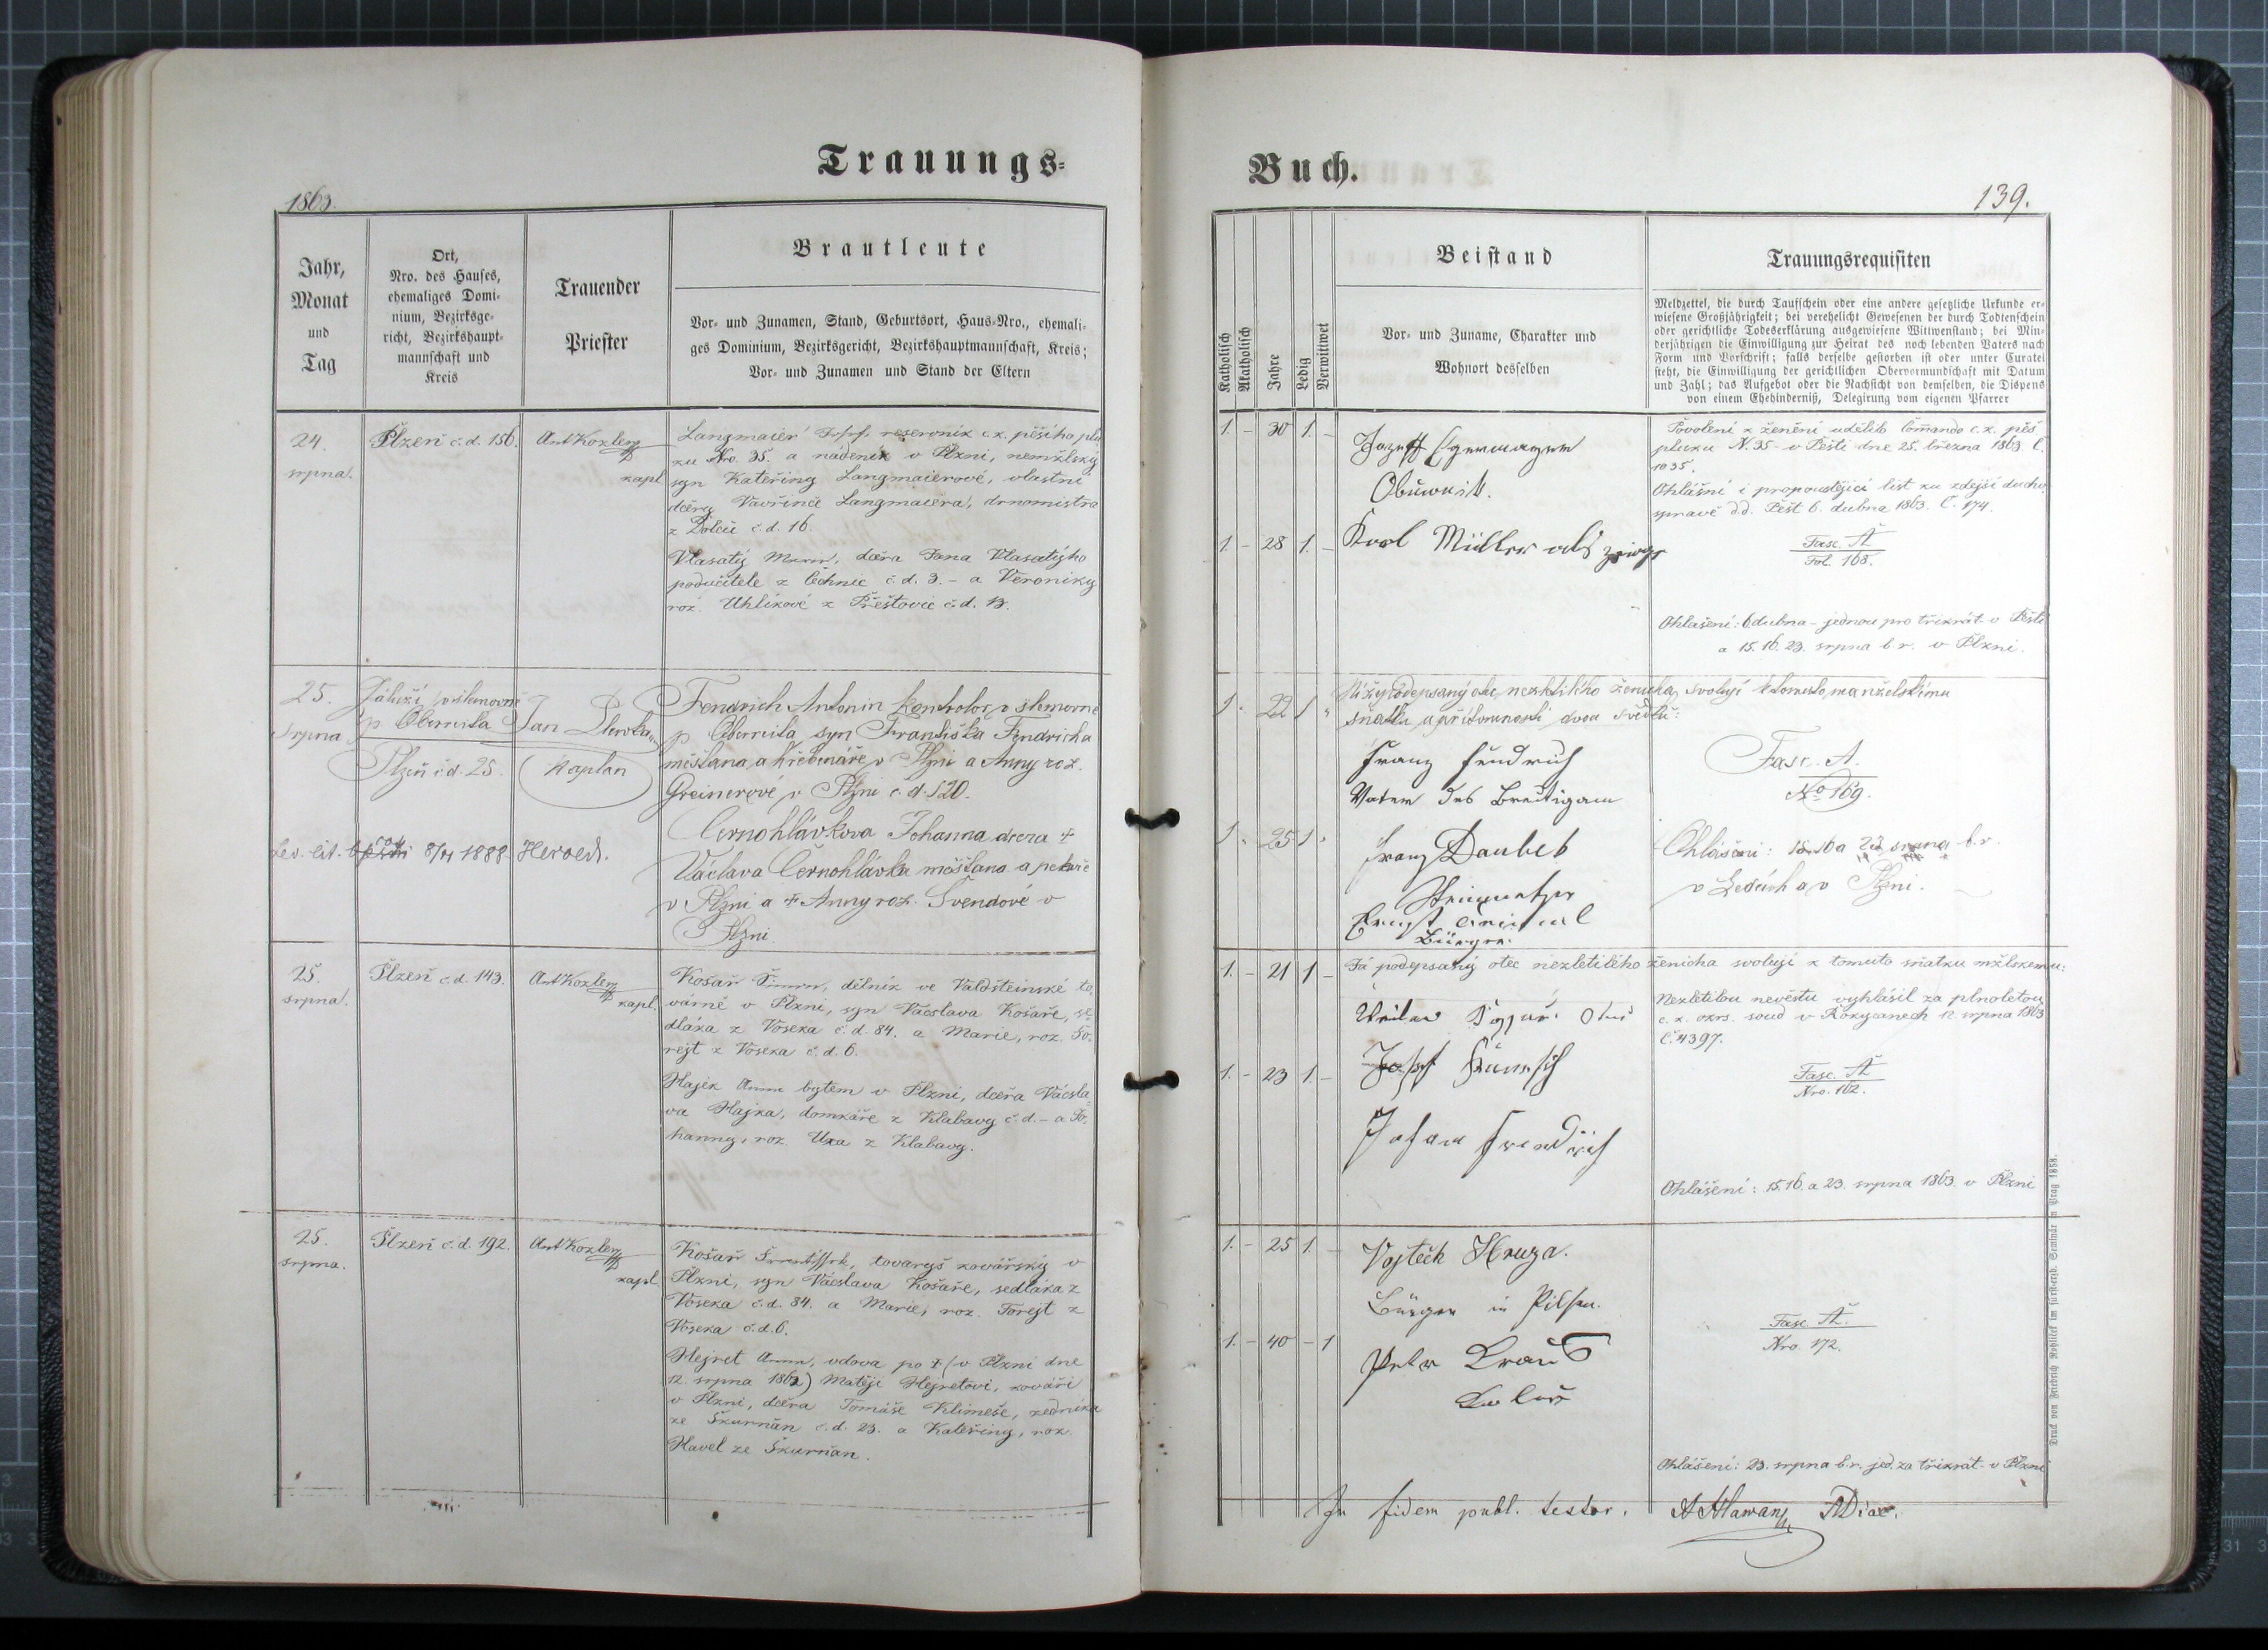 Trauungs=
1863.
Jahr,
Monat
und
Tag
Ort,
Nro. des Hauses,
ehemaliges Domi-
nium, Bezirksge-
richt, Bezirkshaupt-
mannschaft und
Kreis
Trauender
Priester
Brautleute
Vor- und Zunamen, Stand, Geburtsort, Haus-Nro., ehemali-
ges Dominium, Bezirksgericht, Bezirkshauptmannschaft, Kreis;
Vor- und Zunamen und Stand der Eltern
24.
srpna.
Plzeň č.d. 156.
Ant Kozler
kapl.
Langmaier Josef, reservník c.k. pěšího plu
ku Nro. 35. a nádeník v Plzni, nemžlský
syn Kateřiny Langmaierové, vlastní
dcery Vavřince Langmaiera, drnomistra
z Dolců č.d. 16.
Vlasatý Marie, dcera Jana Vlasatýho
podučitele z Čechnic č.d. 3. - a Veroniky
roz. Uhlíkové z Přeštovic č.d. 13.
25.
srpna
Zátiší v šlemovně
p. Obermila
Plzeň č.d. 25.
Jan
kaplan
Fendrich Antonin kontrolor v šlemovně
p. syn Františka Fendricha
měšťana a hřebenáře v Plzni a Anny roz.
Greinerové v Plzni č.d. 520.
Černohlávkova Johanna dcera +
Václava Černohlávka měšťana a pekaře
v Plzni a + Anny roz. Švendové v
Plzni.
8/11 1888.
25.
srpna.
Plzeň č.d. 143.
Ant Kozler
kapl.
Košař Šimon, dělník ve Valdšteinské to
várně v Plzni, syn Vácslava Košaře, se
dláka z Voseka č.d. 84. a Marie, roz. Fo-
rejt z Voseka č.d. 6.
Hajek Anna bytem v Plzni, dcera Vácsla-
va Hajka, domkáře z Klabavy č.d. - a Jo-
hanny, roz. Uxa z Klabavy.
25.
srpna.
Plzeň č.d. 192.
Ant Kozler
kapl.
Košař František, tovaryš kovářský v
Plzni, syn Vácslava Košaře, sedláka z
Voseka č.d. 84. a Marie, roz. Forejt z
Voseka č.d. 6.
Hejret Anna, vdova po + (v Plzni dne
12. srpna 1862) Matěji Hejretovi, kováři
v Plzni, dcera Tomáše Klimeše, zedníka
ze Škurnan č.d. 23. a Kateřiny, roz.
Havel ze Škurňan.
Buch.
139.
Katholisch
Akatholisch
Jahre
Ledig
Verwitwet
Beistand
Vor- und Zuname, Charakter und
Wohnort desselben
Trauungsrequisiten
Meldzettel, die durch Taufschein oder eine andere gesetzliche Urkunde er-
wiesene Großjährigkeit; bei verehelicht Gewesenen der durch Todtenschein
oder gerichtliche Todeserklärung ausgewiesene Wittwenstand; bei Min-
derjährigen die Einwilligung zur Heirat des noch lebenden Vaters nach
Form und Vorschrift; falls derselbe gestorben ist oder unter Curatel
steht, die Einwilligung der gerichtlichen Obervormundschaft mit Datum
und Zahl; das Aufgebot oder die Nachsicht von demselben, die Dispens
von einem Ehehinderniß, Delegirung vom eigenen Pfarrer
1. - 30 1. -
Obuwnik.
1. - 28 1. -
Karl Müller als zeige
Povolení k ženění udělilo Comando c.k. pěš
pluku N. 35 - v Pešti dne 25. března 1863 Č.
1035.
Ohlášní i propouštějící list ku zdejší ducho
správě d.d. Pešt 6. dubna 1863. Č. 174.
Fasc. A
Fol. 168.
Ohlašení: 6 dubna - jednou pro třikrát - v Pešti
a 15. 16. 23. srpna b.r. v Plzni.
1. 22 1
Níže podepsaný otec nezletilého ženicha, svoluji k tomuto manželskímu
sňatku u přítomnosti dvou svědků:
Franz Fendrich
Vater des Breitigam
1. 25 1.
Franz Daubek
Steinmetzer
Bürger.
Fasc. A.
No 169.
Ohlášeni: 15. 16 a 23 srpna b.r.
v a v Plzni.
1. - 21 1 -
Já podepsaný otec nezletilého ženicha svoluji k tomuto sňatku mžlskemu:
1. - 23 1. -
Johan Frendrich
Nezletilou nevěstu vyhlásil za plnoletou
c.k. okrs. soud v Rokycanech 12. srpna 1863
Č. 4397.
Fasc. A
Nro. 162.
Ohlášení: 15. 16. a 23. srpna 1863. v Plzni
1. - 25 1. -
Vojtěch Hruza.
Bürger in Pilsen.
1. - 40 - 1
Petr Kraus
Fasc. A.
Nro. 172.
Ohlášení: 23. srpna b.r. jed. za třikrát - v Plzni
In fidem publ. testor.
Druck von Friedrich Rohliček im fürst-erzb. Seminär in Prag 1858.